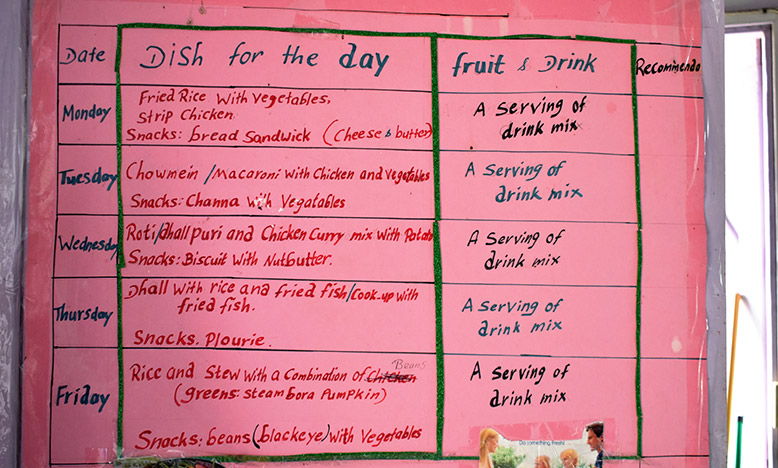 Date Dish for the day fruit & Drink Recommenda
Monday
Fried Rice With Vegetables,
Strip Chicken
Snacks: bread Sandwick (Cheese & butter)
A Serving of
drink mix
Tuesday
Chowmein /Macaroni With Chicken and Vegetables
Snacks: Channa With Vegatables
A Serving of
drink mix
Wednesday
Roti/dhall puri and Chicken Curry mix With Potato
Snacks: Biscuit With Nutbutter.
A Serving of
drink mix
Thursday
Dhall With rice and fried fish/Cook-up with
fried fish.
Snacks. Plourie.
A Serving of
drink mix
Friday
Beans
Rice and Stew With a Combination of
(greens: steam bora Pumpkin)
Snacks: beans (blackeye) With Vegetables
A Serving of
drink mix
Do something fresh!